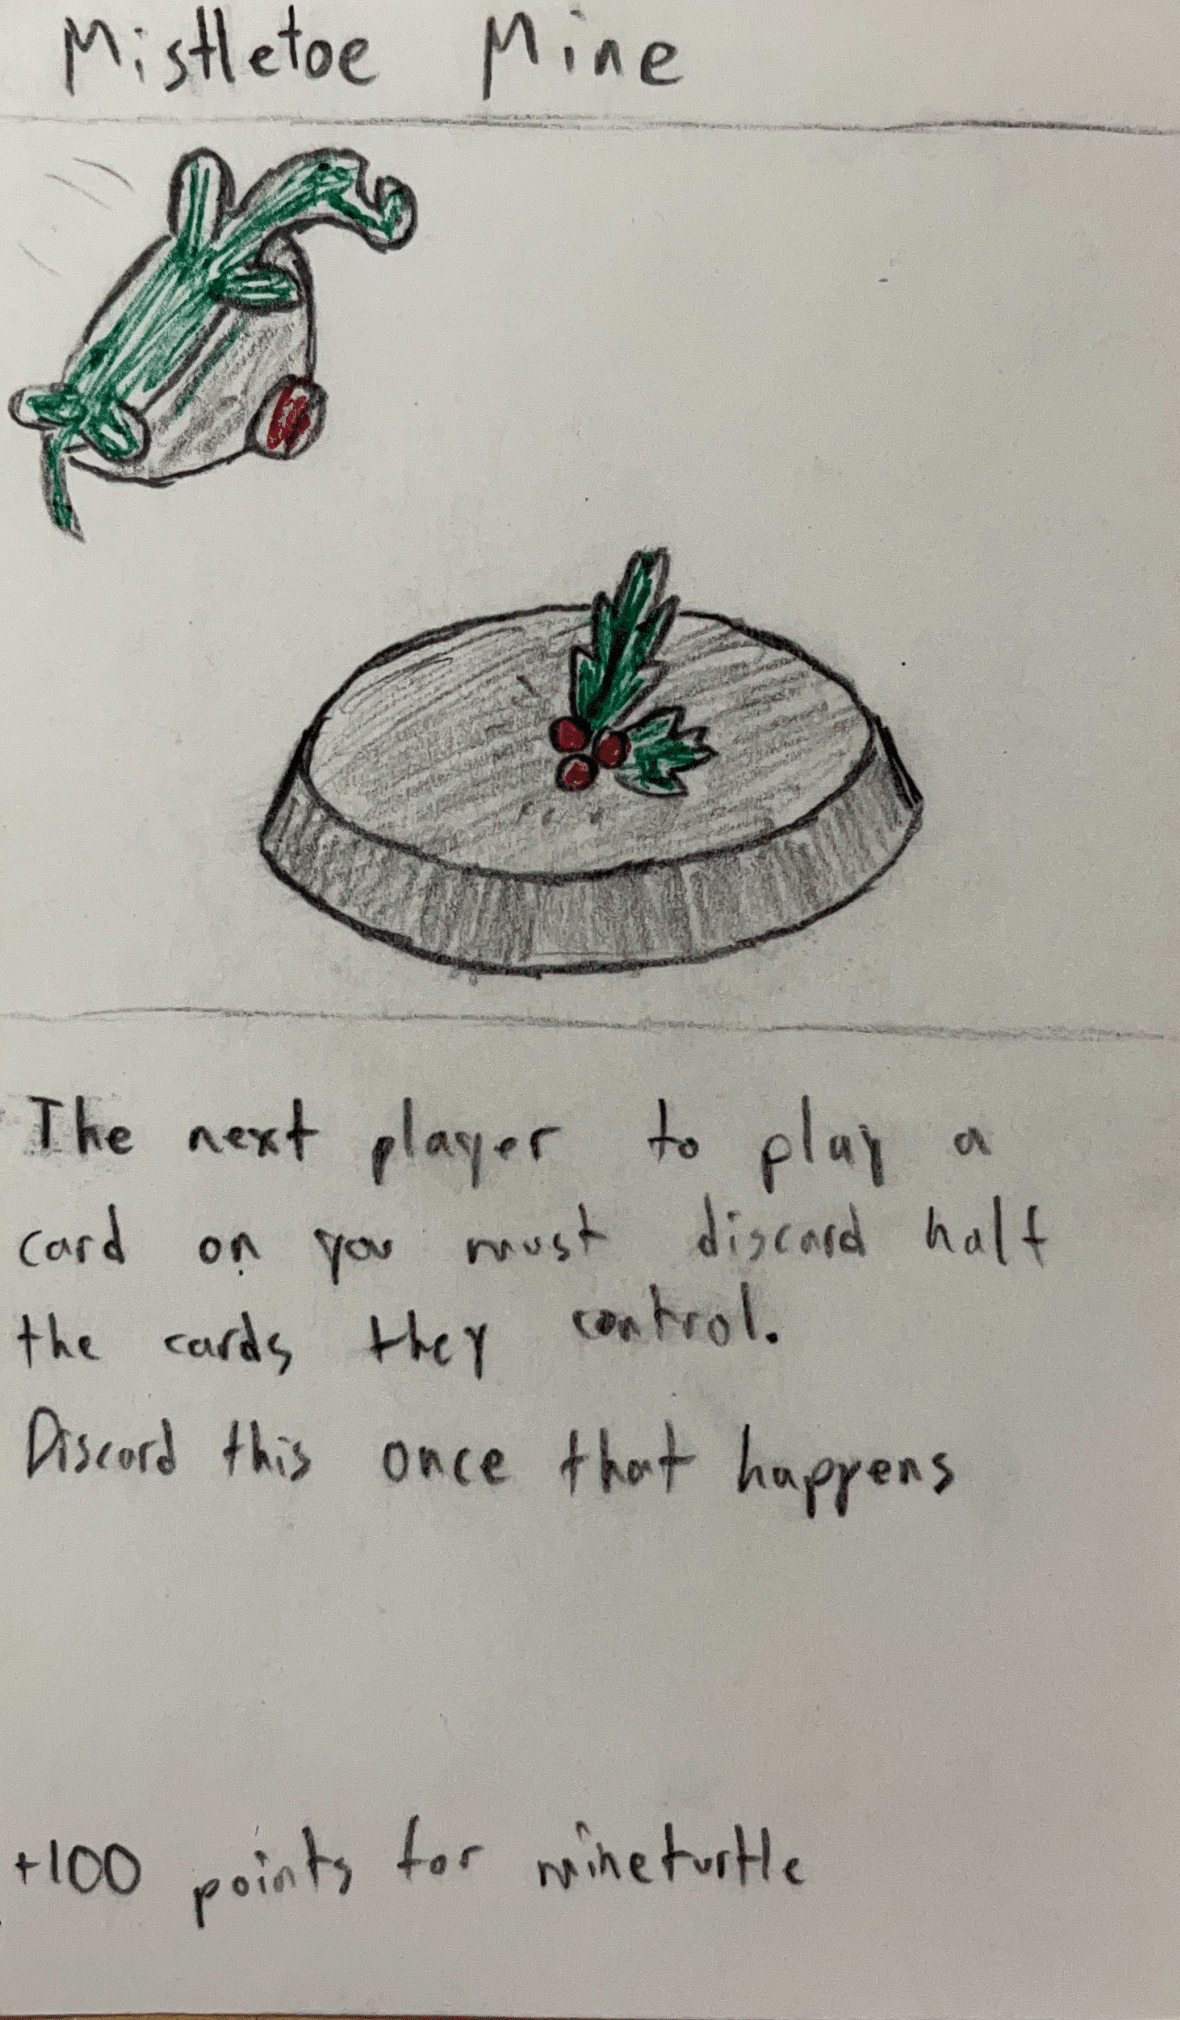 Mistletoe Mine
The next player to play a
card on you must discard half
the cards they control.
Discard this once that happens
+100 points for mineturtle